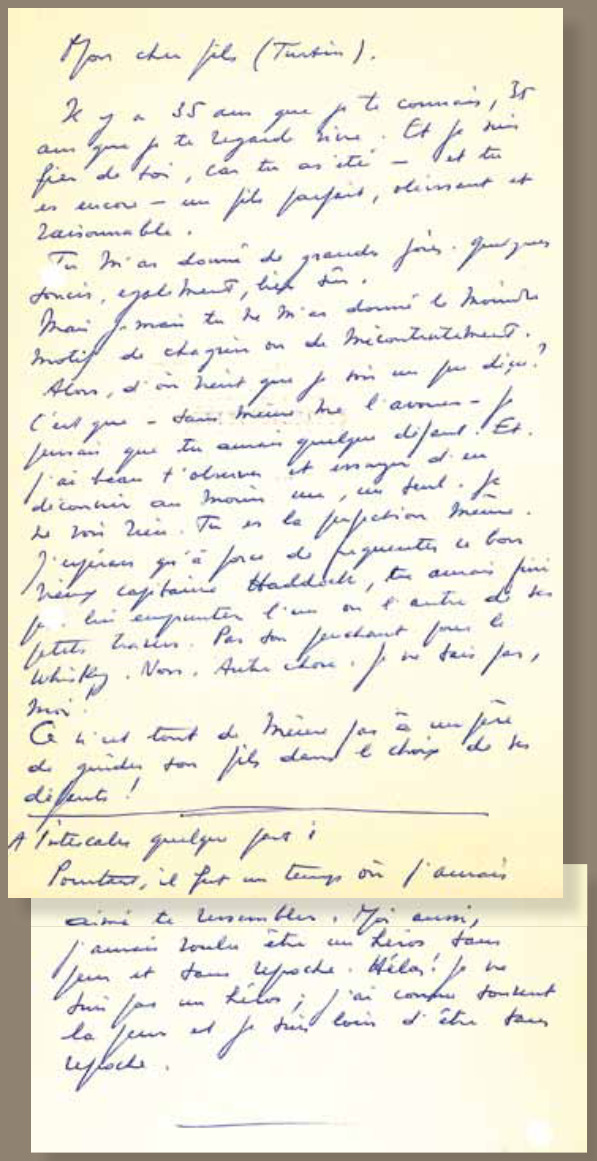 Mon cher fils (Tintin).
Il y a 35 ans que je te connais, 35
ans que je te regarde vivre. Et je suis
fier de toi, car tu as été — et tu
es encore — un fils parfait, obéissant et
raisonnable.
Tu m'as donné de grandes joies. Quelques
soucis, également, bien sûr.
Mais jamais tu ne m'as donné le moindre
motif de chagrin ou de mécontentement.
Alors, d'où vient que je sois un peu déçu ?
C'est que — sans même me l'avouer — je
pensais que tu aurais quelque défaut. Et
j'ai beau t'observer et essayer d'en
découvrir au moins un, un seul. Je
ne vois rien. Tu es la perfection même.
J'espérais qu'à force de fréquenter ce bon
vieux capitaine Haddock, tu aurais fini
par lui emprunter l'un ou l'autre de ses
petits travers. Pas son penchant pour le
whisky. Non. Autre chose. Je ne sais pas,
moi !
Ce n'est tout de même pas à un père
de guider son fils dans le choix de ses
défauts !
A intercaler quelque part :
Pourtant, il fut un temps où j'aurais
aimé te ressembler. Moi aussi,
j'aurais voulu être un héros sans
peur et sans reproche. Hélas ! je ne
suis pas un héros ; j'ai connu souvent
la peur et je suis loin d'être sans
reproche.